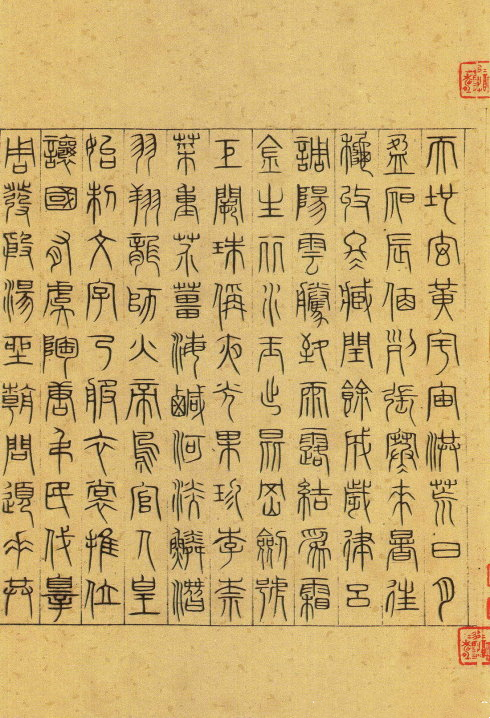 天地玄黃宇宙洪荒日月
盈昃辰宿列張寒來暑往
秋收冬藏閏餘成歲律呂
調陽雲騰致雨露結為霜
金生麗水玉出崑岡劍號
巨闕珠稱夜光果珍李柰
菜重芥薑海鹹河淡鱗潛
羽翔龍師火帝鳥官人皇
始制文字乃服衣裳推位
讓國有虞陶唐弔民伐辠
周發殷湯坐朝問道垂拱